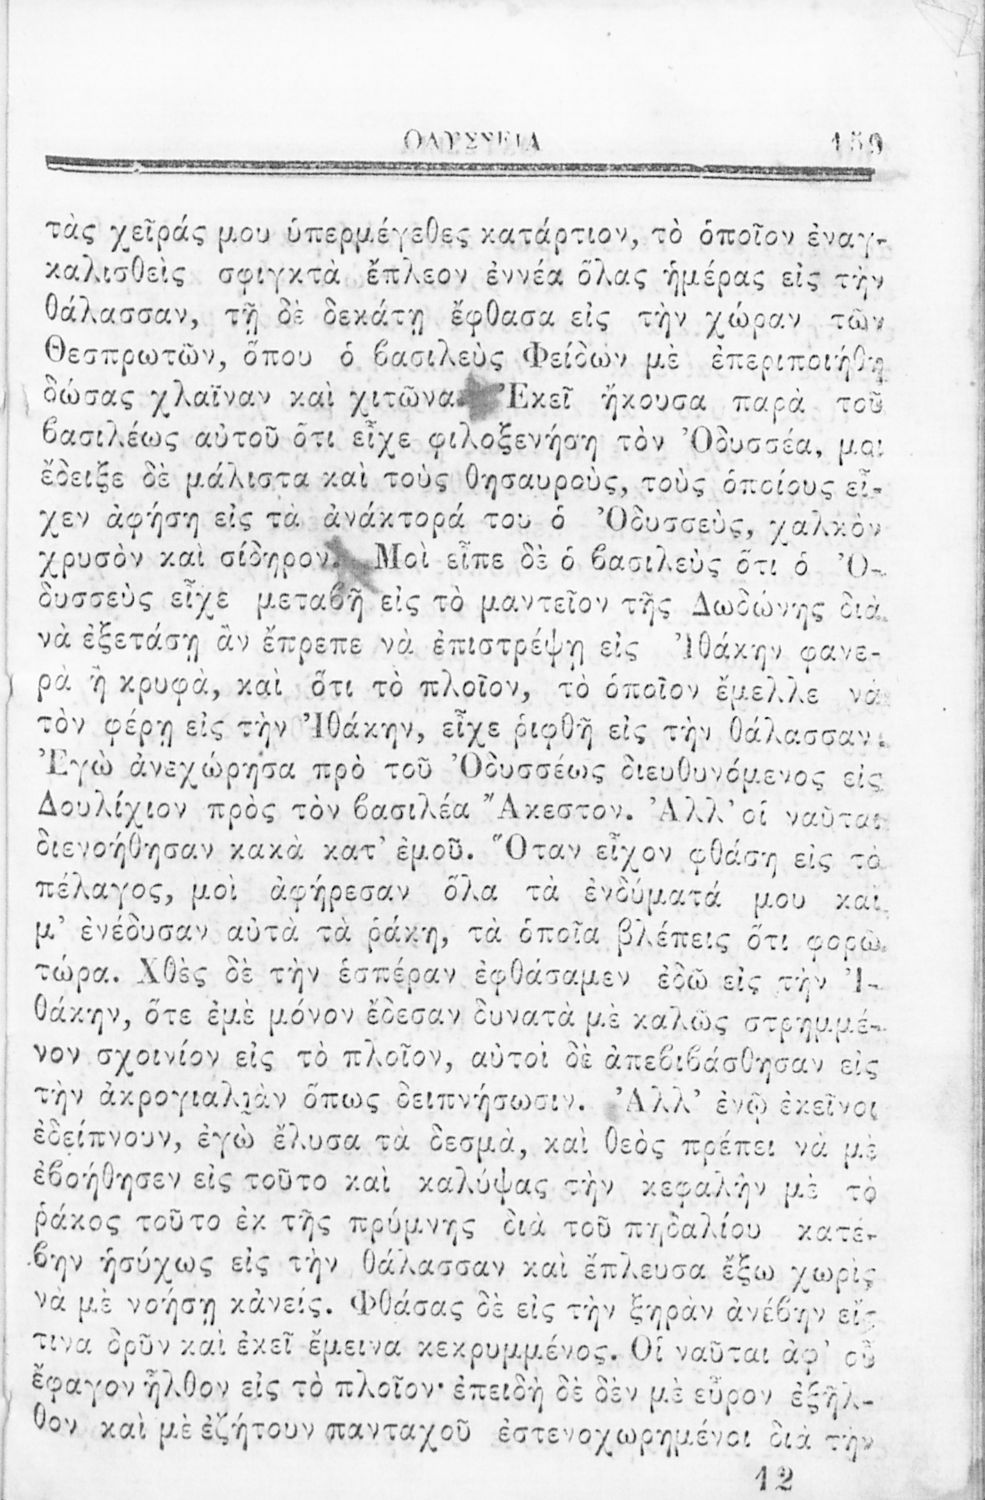 ΟΔΥΣΣΕΙΑ 159
τὰς χεῖράς μου ὑπερμέγεθες κατάρτιον, τὸ ὁποῖον ἐναγ-
καλισθεὶς σφιγκτὰ ἔπλεον ἐννέα ὅλας ἡμέρας εἰς τὴν
θάλασσαν, τῇ δὲ δεκάτῃ ἔφθασα εἰς τὴν χώραν τῶν
Θεσπρωτῶν, ὅπου ὁ βασιλεὺς Φείδων μὲ ἐπεριποιήθη
δώσας χλαῖναν καὶ χιτῶνα. Ἐκεῖ ἤκουσα παρὰ τοῦ
βασιλέως αὐτοῦ ὅτι εἶχε φιλοξενήση τὸν Ὀδυσσέα, μοι
ἔδειξε δὲ μάλιστα καὶ τοὺς θησαυροὺς, τοὺς ὁποίους εἶ-
χεν ἀφήση εἰς τὰ ἀνάκτορά του ὁ Ὀδυσσεὺς, χαλκὸν
χρυσὸν καὶ σίδηρον. Μοὶ εἶπε δὲ ὁ βασιλεὺς ὅτι ὁ Ὀ-
δυσσεὺς εἶχε μεταβῆ εἰς τὸ μαντεῖον τῆς Δωδώνης διὰ
νὰ ἐξετάσῃ ἂν ἔπρεπε νὰ ἐπιστρέψῃ εἰς Ἰθάκην φανε-
ρὰ ἢ κρυφὰ, καὶ ὅτι τὸ πλοῖον, τὸ ὁποῖον ἔμελλε νὰ
τὸν φέρῃ εἰς τὴν Ἰθάκην, εἶχε ῥιφθῆ εἰς τὴν θάλασσαν.
Ἐγὼ ἀνεχώρησα πρὸ τοῦ Ὀδυσσέως διευθυνόμενος εἰς
Δουλίχιον πρὸς τὸν βασιλέα Ἄκεστον. Ἀλλ’ οἱ ναῦται
διενοήθησαν κακὰ κατ’ ἐμοῦ. Ὅταν εἶχον φθάση εἰς τὸ
πέλαγος, μοὶ ἀφήρεσαν ὅλα τὰ ἐνδύματά μου καὶ
μ’ ἐνέδυσαν αὐτὰ τὰ ῥάκη, τὰ ὁποῖα βλέπεις ὅτι φορῶ
τώρα. Χθὲς δὲ τὴν ἑσπέραν ἐφθάσαμεν ἐδῶ εἰς τὴν Ἰ-
θάκην, ὅτε ἐμὲ μόνον ἔδεσαν δυνατὰ μὲ καλῶς στρημμέ-
νον σχοινίον εἰς τὸ πλοῖον, αὐτοὶ δὲ ἀπεβιβάσθησαν εἰς
τὴν ἀκρογιαλιὰν ὅπως δειπνήσωσιν. Ἀλλ’ ἐνῷ ἐκεῖνοι
ἐδείπνουν, ἐγὼ ἔλυσα τὰ δεσμὰ, καὶ θεὸς πρέπει νὰ μὲ
ἐβοήθησεν εἰς τοῦτο καὶ καλύψας τὴν κεφαλὴν μὲ τὸ
ῥάκος τοῦτο ἐκ τῆς πρύμνης διὰ τοῦ πηδαλίου κατέ-
βην ἡσύχως εἰς τὴν θάλασσαν καὶ ἔπλευσα ἔξω χωρὶς
νὰ μὲ νοήσῃ κἀνείς. Φθάσας δὲ εἰς τὴν ξηρὰν ἀνέβην εἴς
τινα δρῦν καὶ ἐκεῖ ἔμεινα κεκρυμμένος. Οἱ ναῦται ἀφ’ οὗ
ἔφαγον ἦλθον εἰς τὸ πλοῖον· ἐπειδὴ δὲ δὲν μὲ εὗρον ἐξῆλ-
θον καὶ μὲ ἐζήτουν πανταχοῦ ἐστενοχωρημένοι διὰ τὴν
12